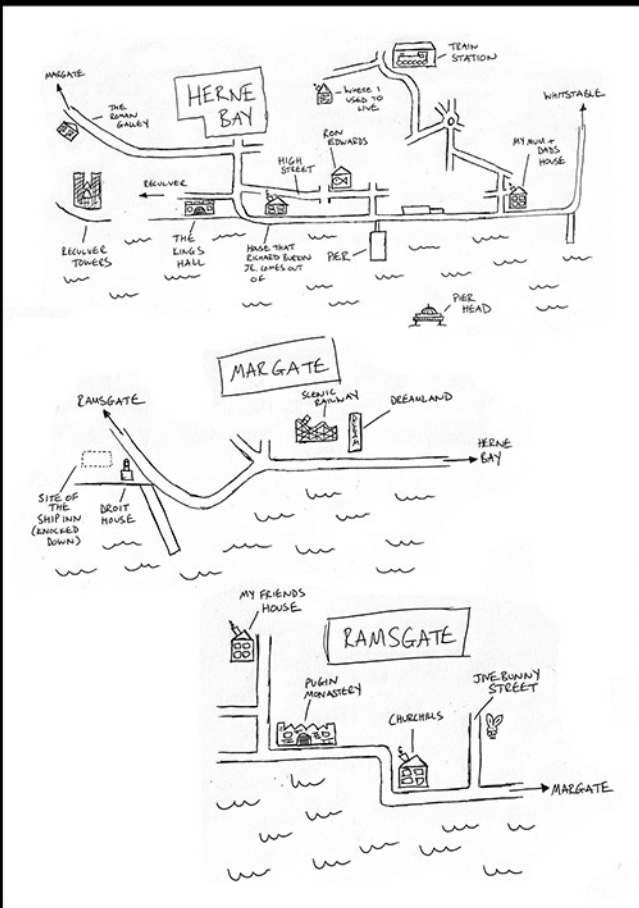 MARGATE
THE
ROMAN
GALLEY
HERNE
BAY
TRAIN
STATION
WHERE I
USED TO
LIVE
WHITSTABLE
RON
EDWARDS
HIGH
STREET
MY MUM +
DADS
HOUSE
RECULVER
RECULVER
TOWERS
THE
KINGS
HALL
HOUSE THAT
RICHARD BURTON
JR. COMES OUT
OF
PIER
PIER
HEAD
MARGATE
RAMSGATE
SCENIC
RAILWAY
DREAMLAND
DREAM
HERNE
BAY
SITE OF
THE
SHIP INN
(KNOCKED
DOWN)
DROIT
HOUSE
MY FRIENDS
HOUSE
RAMSGATE
PUGIN
MONASTERY
JIVE BUNNY
STREET
CHURCHILLS
MARGATE